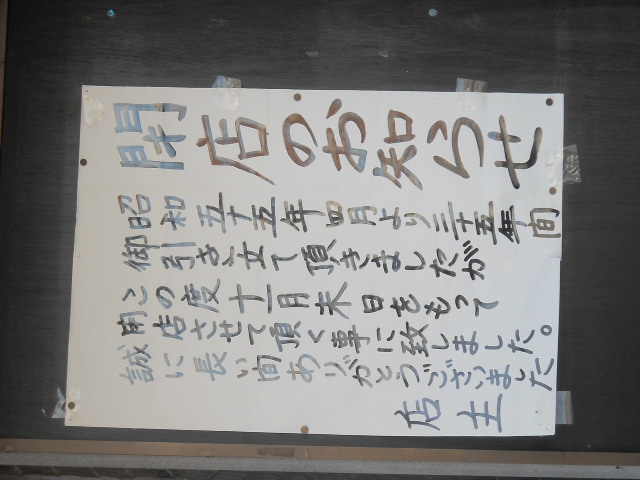 閉店のお知らせ
昭和五十五年四月より三十五年間
御引き立て頂きましたが
この度十一月末日をもって
閉店させて頂く事に致しました。
誠に長い間ありがとうございました
店主